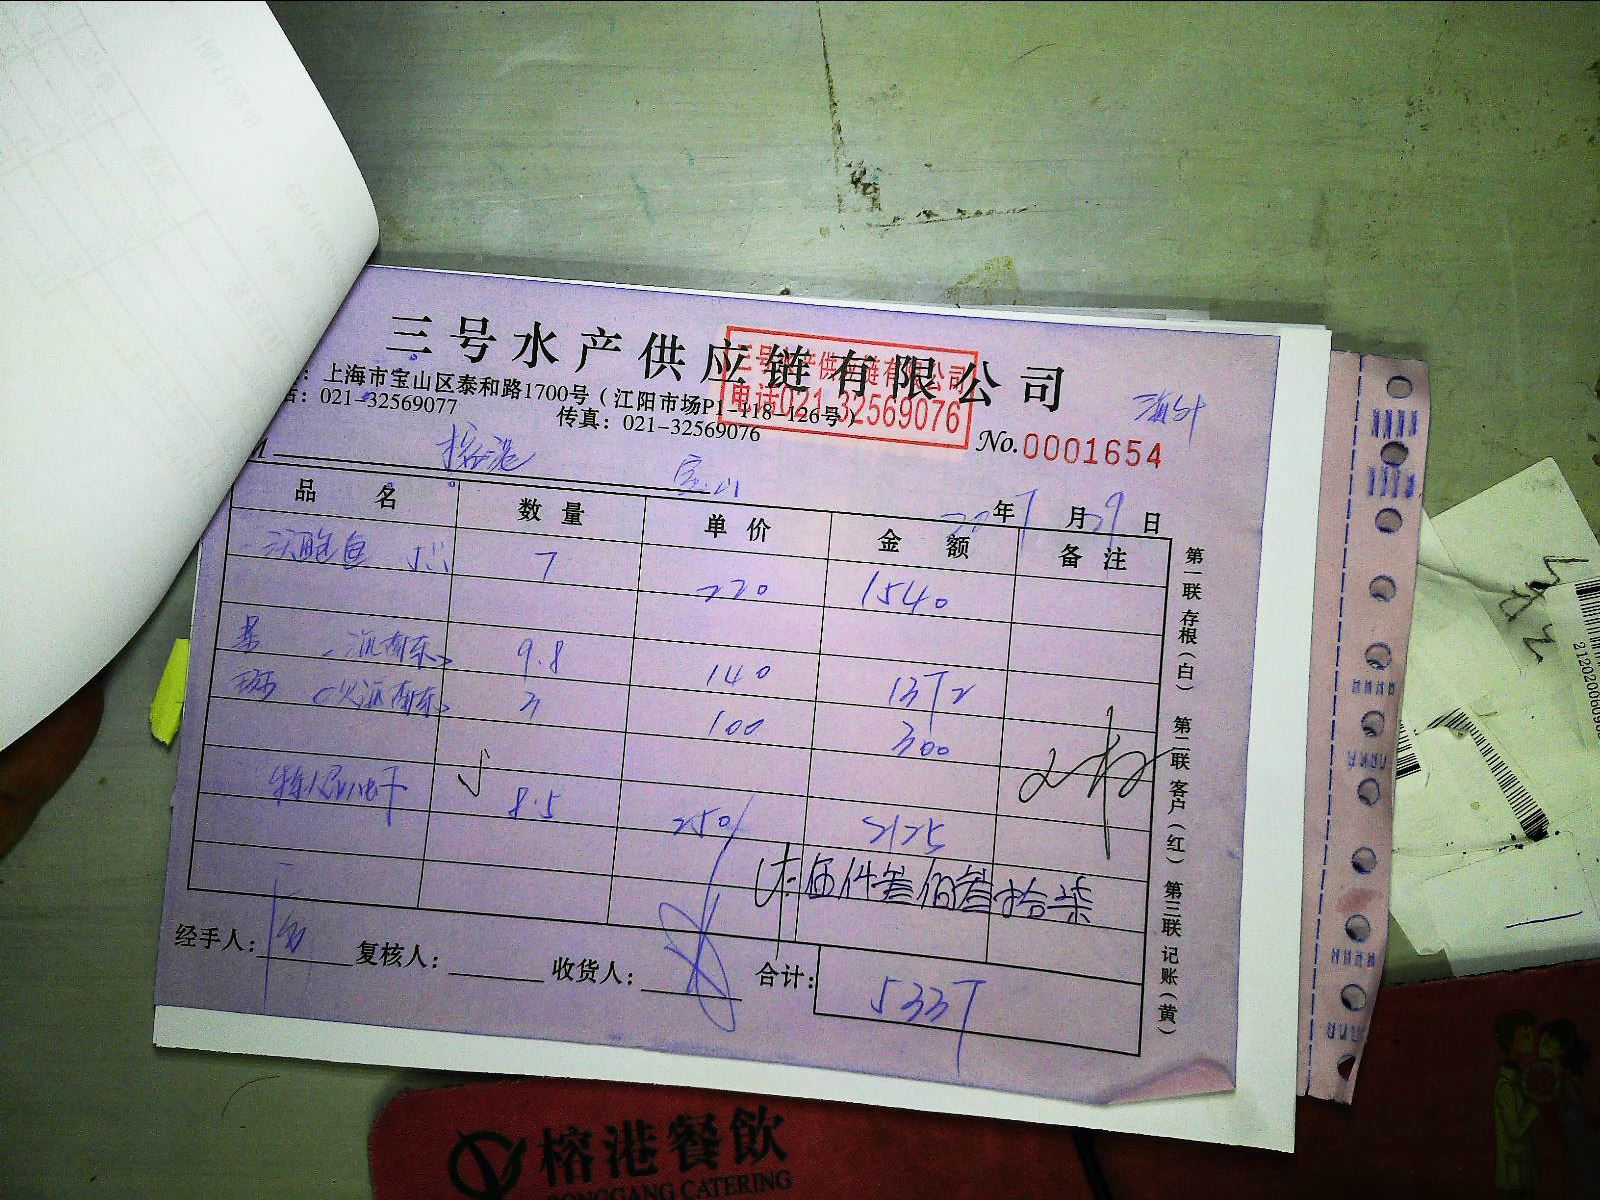 三号水产供应链有限公司
三号水产供应链有限公司
电话021-32569076
上海市宝山区泰和路1700号（江阳市场P1-118-126号）
话：021-32569077 传真：021-32569076
No.0001654
榕港 宝山
22年7月29日
品名 数量 单价 金额 备注
7 220 1540
9.8 140 1372
3 100 300
8.5 250 2125
伍仟叁佰叁拾柒
经手人： 复核人： 收货人： 合计： 5337
第一联 存根（白） 第二联 客户（红） 第三联 记账（黄）
榕港餐饮
RONGGANG CATERING